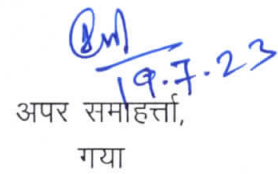 19.7.23
अपर समाहर्त्ता,
गया